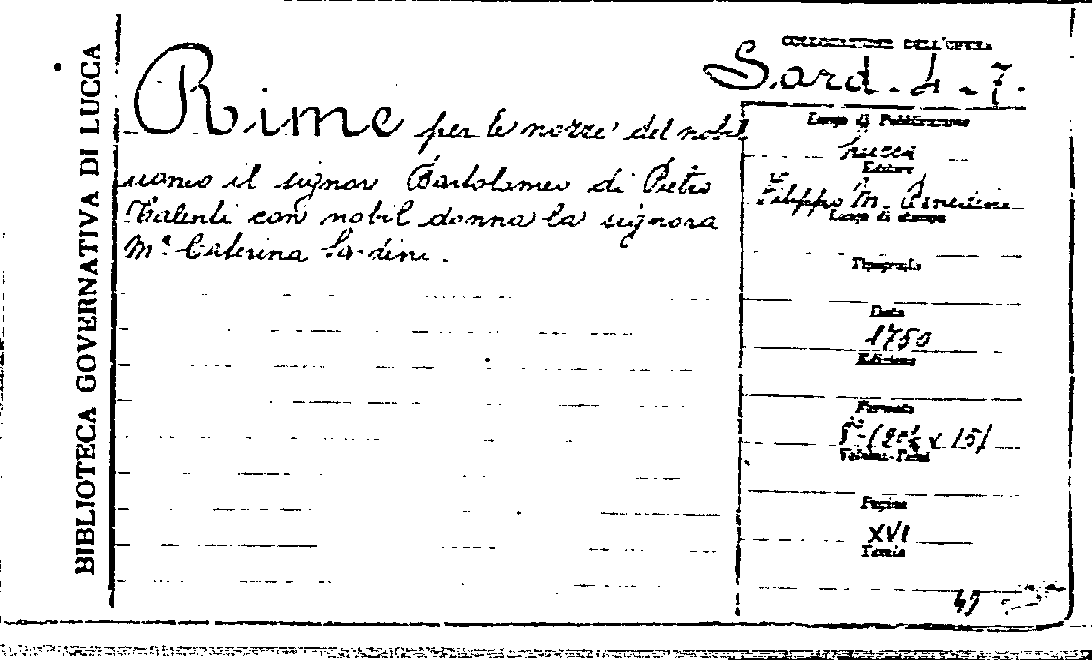 BIBLIOTECA GOVERNATIVA DI LUCCA
Rime per le nozze del nobil
uomo il signor Bartolomeo di Pietro
Talenti con nobil donna la signora
Mª Caterina Sardini.
COLLOCAZIONE DELL'OPERA
Sard. 4-7.
Luogo di Pubblicazione
Lucca
Editore
Filippo M. Benedini
Luogo di stampa
Tipografo
Data
1750
Edizione
Formato
8º (20½ x 15)
Volumi-Tomi
Pagine
XVI
Tavole
49